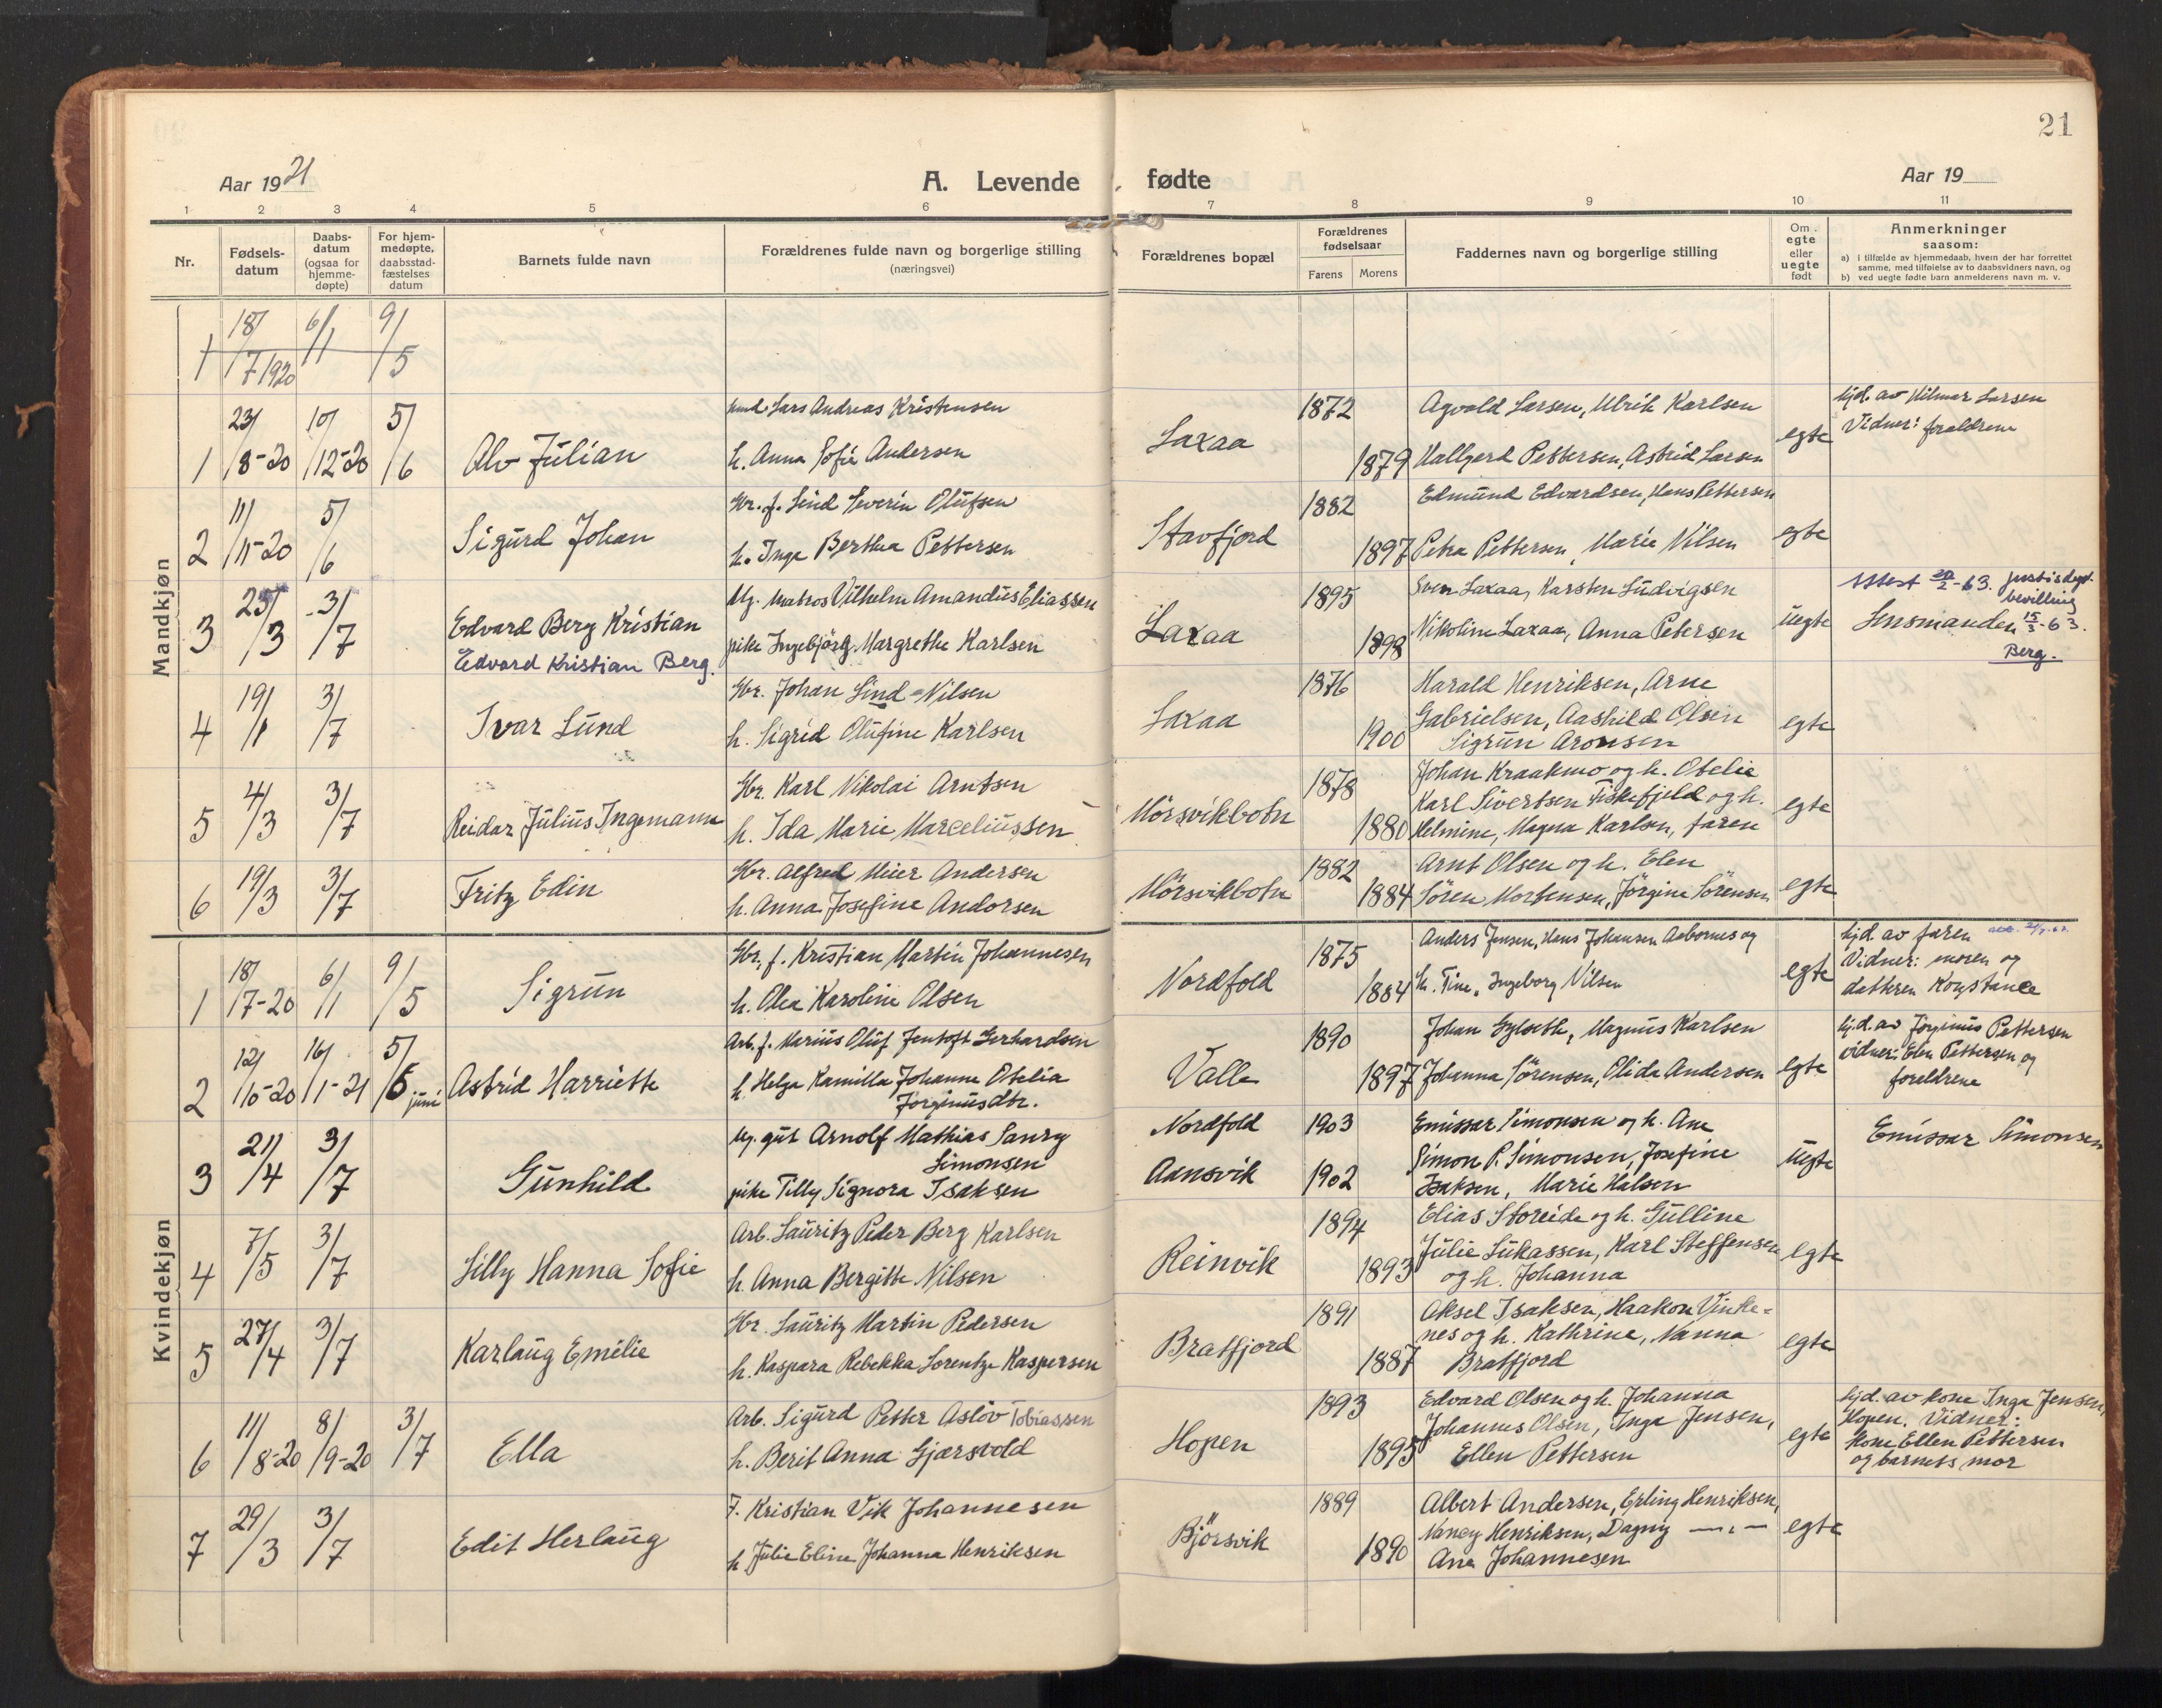 21
Aar 1921
A. Levende fødte
Aar 19
1 2 3 4 5 6 7 8 9 10 11
Nr.
Fødsels-
datum
Daabs-
datum
(ogsaa for
hjemme-
døpte)
For hjem-
medøpte,
daabsstad-
fæstelses
datum
Barnets fulde navn
Forældrenes fulde navn og borgerlige stilling
(næringsvei)
Forældrenes bopæl
Forældrenes
fødselsaar
Farens Morens
Faddernes navn og borgerlige stilling
Om
egte
eller
uegte
født
Anmerkninger
saasom:
a) i tilfælde av hjemmedaab, hvem der har forrettet
samme, med tilføielse av to daabsvidners navn, og
b) ved uegte fødte barn anmelderens navn m. v.
Mandkjøn
1 18/7 1920 6/1 9/5
1 23/8-20 10/12-20 5/6 Alv Julian
Lars Andreas Kristensen
h. Anna Sofie Andersen
Laxaa 1872 1879
Agvald Larsen, Ulrik Karlsen
Hallgerd Pettersen, Astrid Larsen
egte
hjd. av Hilmar Larsen
Vidner: forældrene
2 11/11-20 5/6 Sigurd Johan
Gbr. f. Lind Severin Olufsen
h. Inga Bertha Pettersen
Stavfjord 1882 1897
Edmund Edvardsen, Hans Pettersen
Petra Pettersen, Marie Nilsen
egte
3 25/3 3/7 Edvard Berg Kristian
Edvard Kristian Berg.
Ug. matros Vilhelm Amandus Eliassen
pike Ingebjörg Margrethe Karlsen
Laxaa 1895 1898
Sven Laxaa, Karsten Ludvigsen
Nikoline Laxaa, Anna Petersen
uegte
Attest 20/2-63. justisdept.
bevilling
Lensmanden 15/3-63.
Berg.
4 19/1 3/7 Ivar Lund
Gbr. Johan Lind Nilsen
h. Sigrid Olufine Karlsen
Laxaa 1876 1900
Harald Henriksen, Arne
Gabrielsen, Aashild Olsen
Sigrun Aronsen
egte
5 4/3 3/7 Reidar Julius Ingemann
Gbr. Karl Nikolai Arntsen
h. Ida Marie Marceliussen
Mørsvikbotn 1878 1880
Johan Kraakmo og h. Otelie
Karl Sivertsen Fiskefjeld og h.
Helmine, Magna Karlsen, faren
egte
6 19/3 3/7 Fritz Edin
Gbr. Alfred Meier Andersen
h. Anna Josefine Andorsen
Mørsvikbotn 1882 1884
Arnt Olsen og h. Elen
Søren Mortensen, Jörgine Sörensen
egte
Kvindekjøn
1 18/7-20 6/1 9/5 Sigrun
Gbr. f. Kristian Martin Johannesen
h. Olea Karoline Olsen
Nordfold 1875 1884
Anders Jensen, Hans Johansen Aabornes og
h. Tine, Ingeborg Nilsen
egte
hjd. av faren
Vidner: moren og
datteren Konstance
2 12/10-20 16/1-21 5/6 juni Astrid Harriette
Arb. f. Marius Oluf Jentoft Gerhardsen
h. Helga Kamilla Johanne Otelia
Jorginusdtr.
Valle 1890 1897
Johan Gylseth, Magnus Karlsen
Johanna Sørensen, Olida Andersen
egte
hj.d. av Jörginus Pettersen
vidner: Elen Pettersen og
foreldrene
3 21/4 3/7 Gunhild
Ug. gut Arnolf Mathias Sanry
Simonsen
pike Tilly Signora Isaksen
Nordfold 1903
Aansvik 1902
Emissær Simonsen og h. Ane
Simon P. Simonsen, Josefine
Isaksen, Marie Halsen
uegte
Emissær Simonsen
4 7/5 3/7 Lilly Hanna Sofie
Arb. Lauritz Peder Berg Karlsen
h. Anna Bergitte Nilsen
Reinvik 1894 1893
Elias Storeide og h. Gulline
Julie Lukassen, Karl Steffensen
og h. Johanna
egte
5 27/4 3/7 Karlaug Emelie
Gbr. Lauritz Martin Pedersen
h. Kaspara Rebekka Lorentze Kaspersen
Bratfjord 1891 1887
Aksel Isaksen, Haakon Vinke-
nes og h. Kathrine, Nanna
Bratfjord
egte
6 11/8-20 8/9-20 3/7 Ella
Arb. Sigurd Petter Aslöv Tobiassen
h. Berit Anna Gjærsvold
Hopen 1893 1895
Edvard Olsen og h. Johanna
Johannes Olsen, Inga Jensen,
Ellen Pettersen
egte
hjd. av kone Inga Jensen,
Hopen. Vidner:
Kone Ellen Pettersen
og barnets mor
7 29/3 3/7 Edit Herlaug
F. Kristian Vik Johannesen
h. Julie Eline Johanna Henriksen
Björsvik 1889 1890
Albert Andersen, Erling Henriksen,
Nancy Henriksen, Dagny —„—
Ana Johannesen
egte